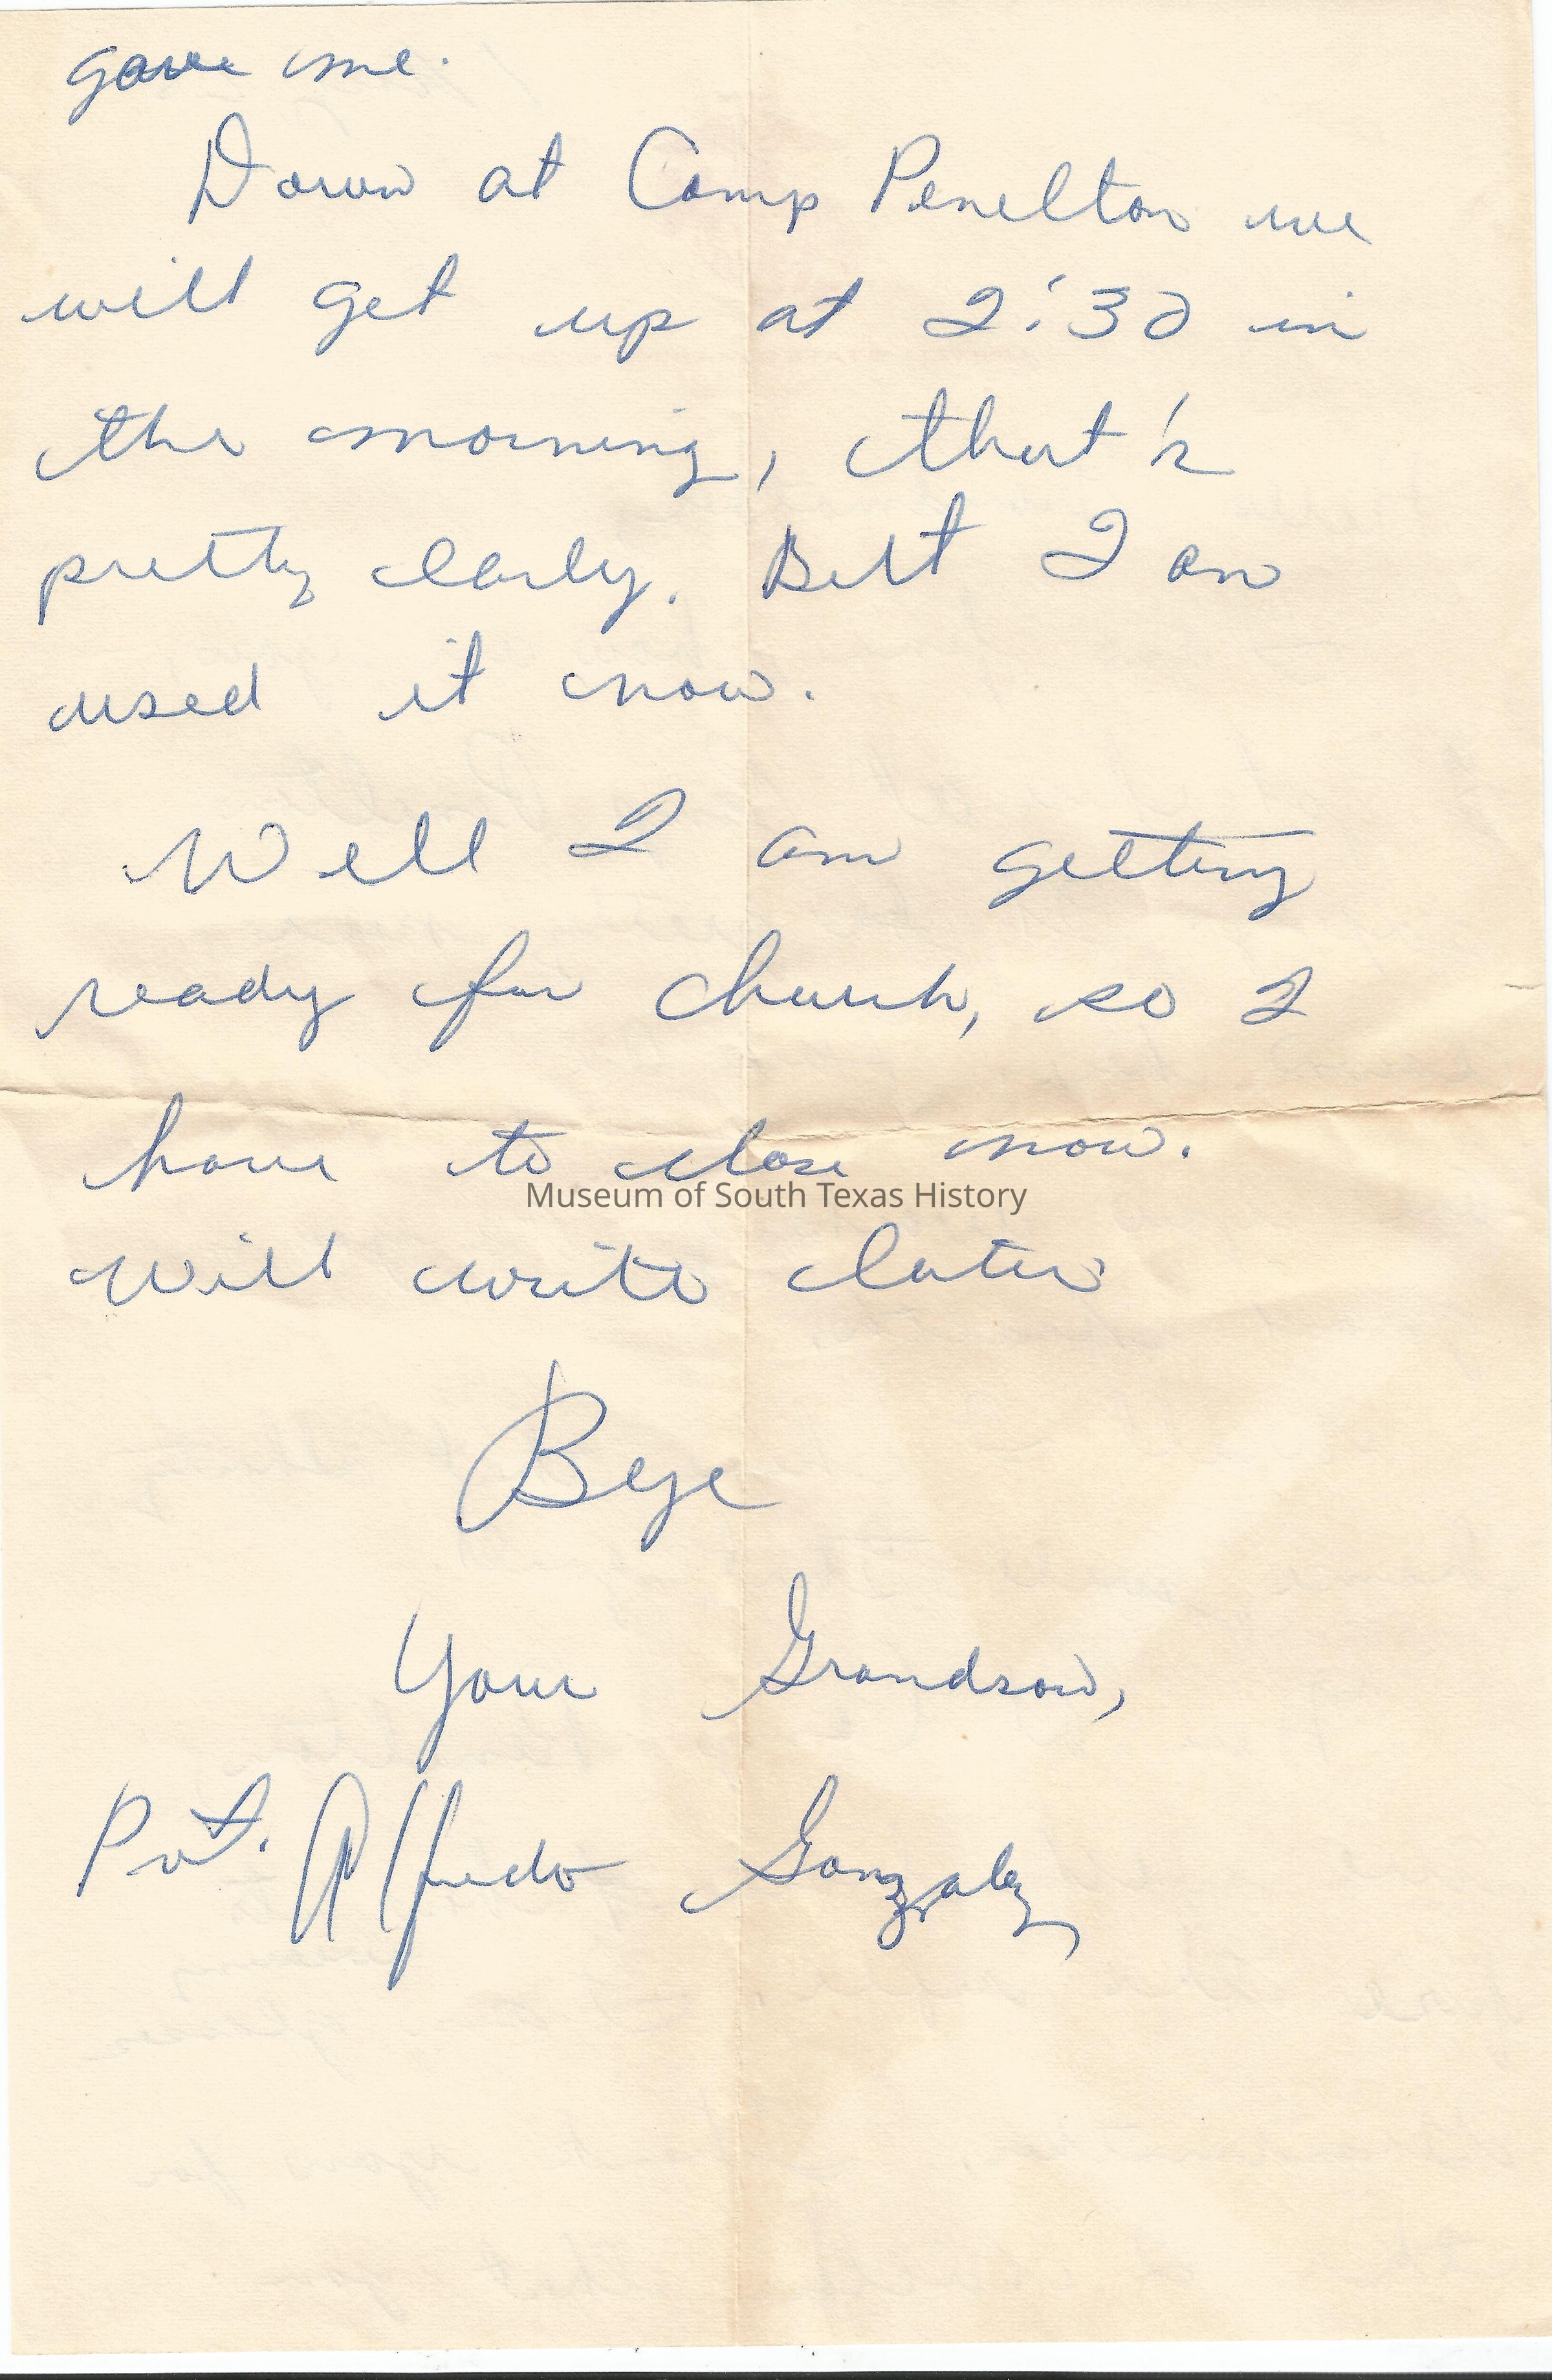 gave me.
Down at Camp Penelton we
will get up at 2:30 in
the morning, that's
pretty early. But I am
used it now.
Well I am getting
ready for church, so I
have to close now.
Museum of South Texas History
will write later
Bye
Your Grandson,
Pvt. Alfredo Gonzalez